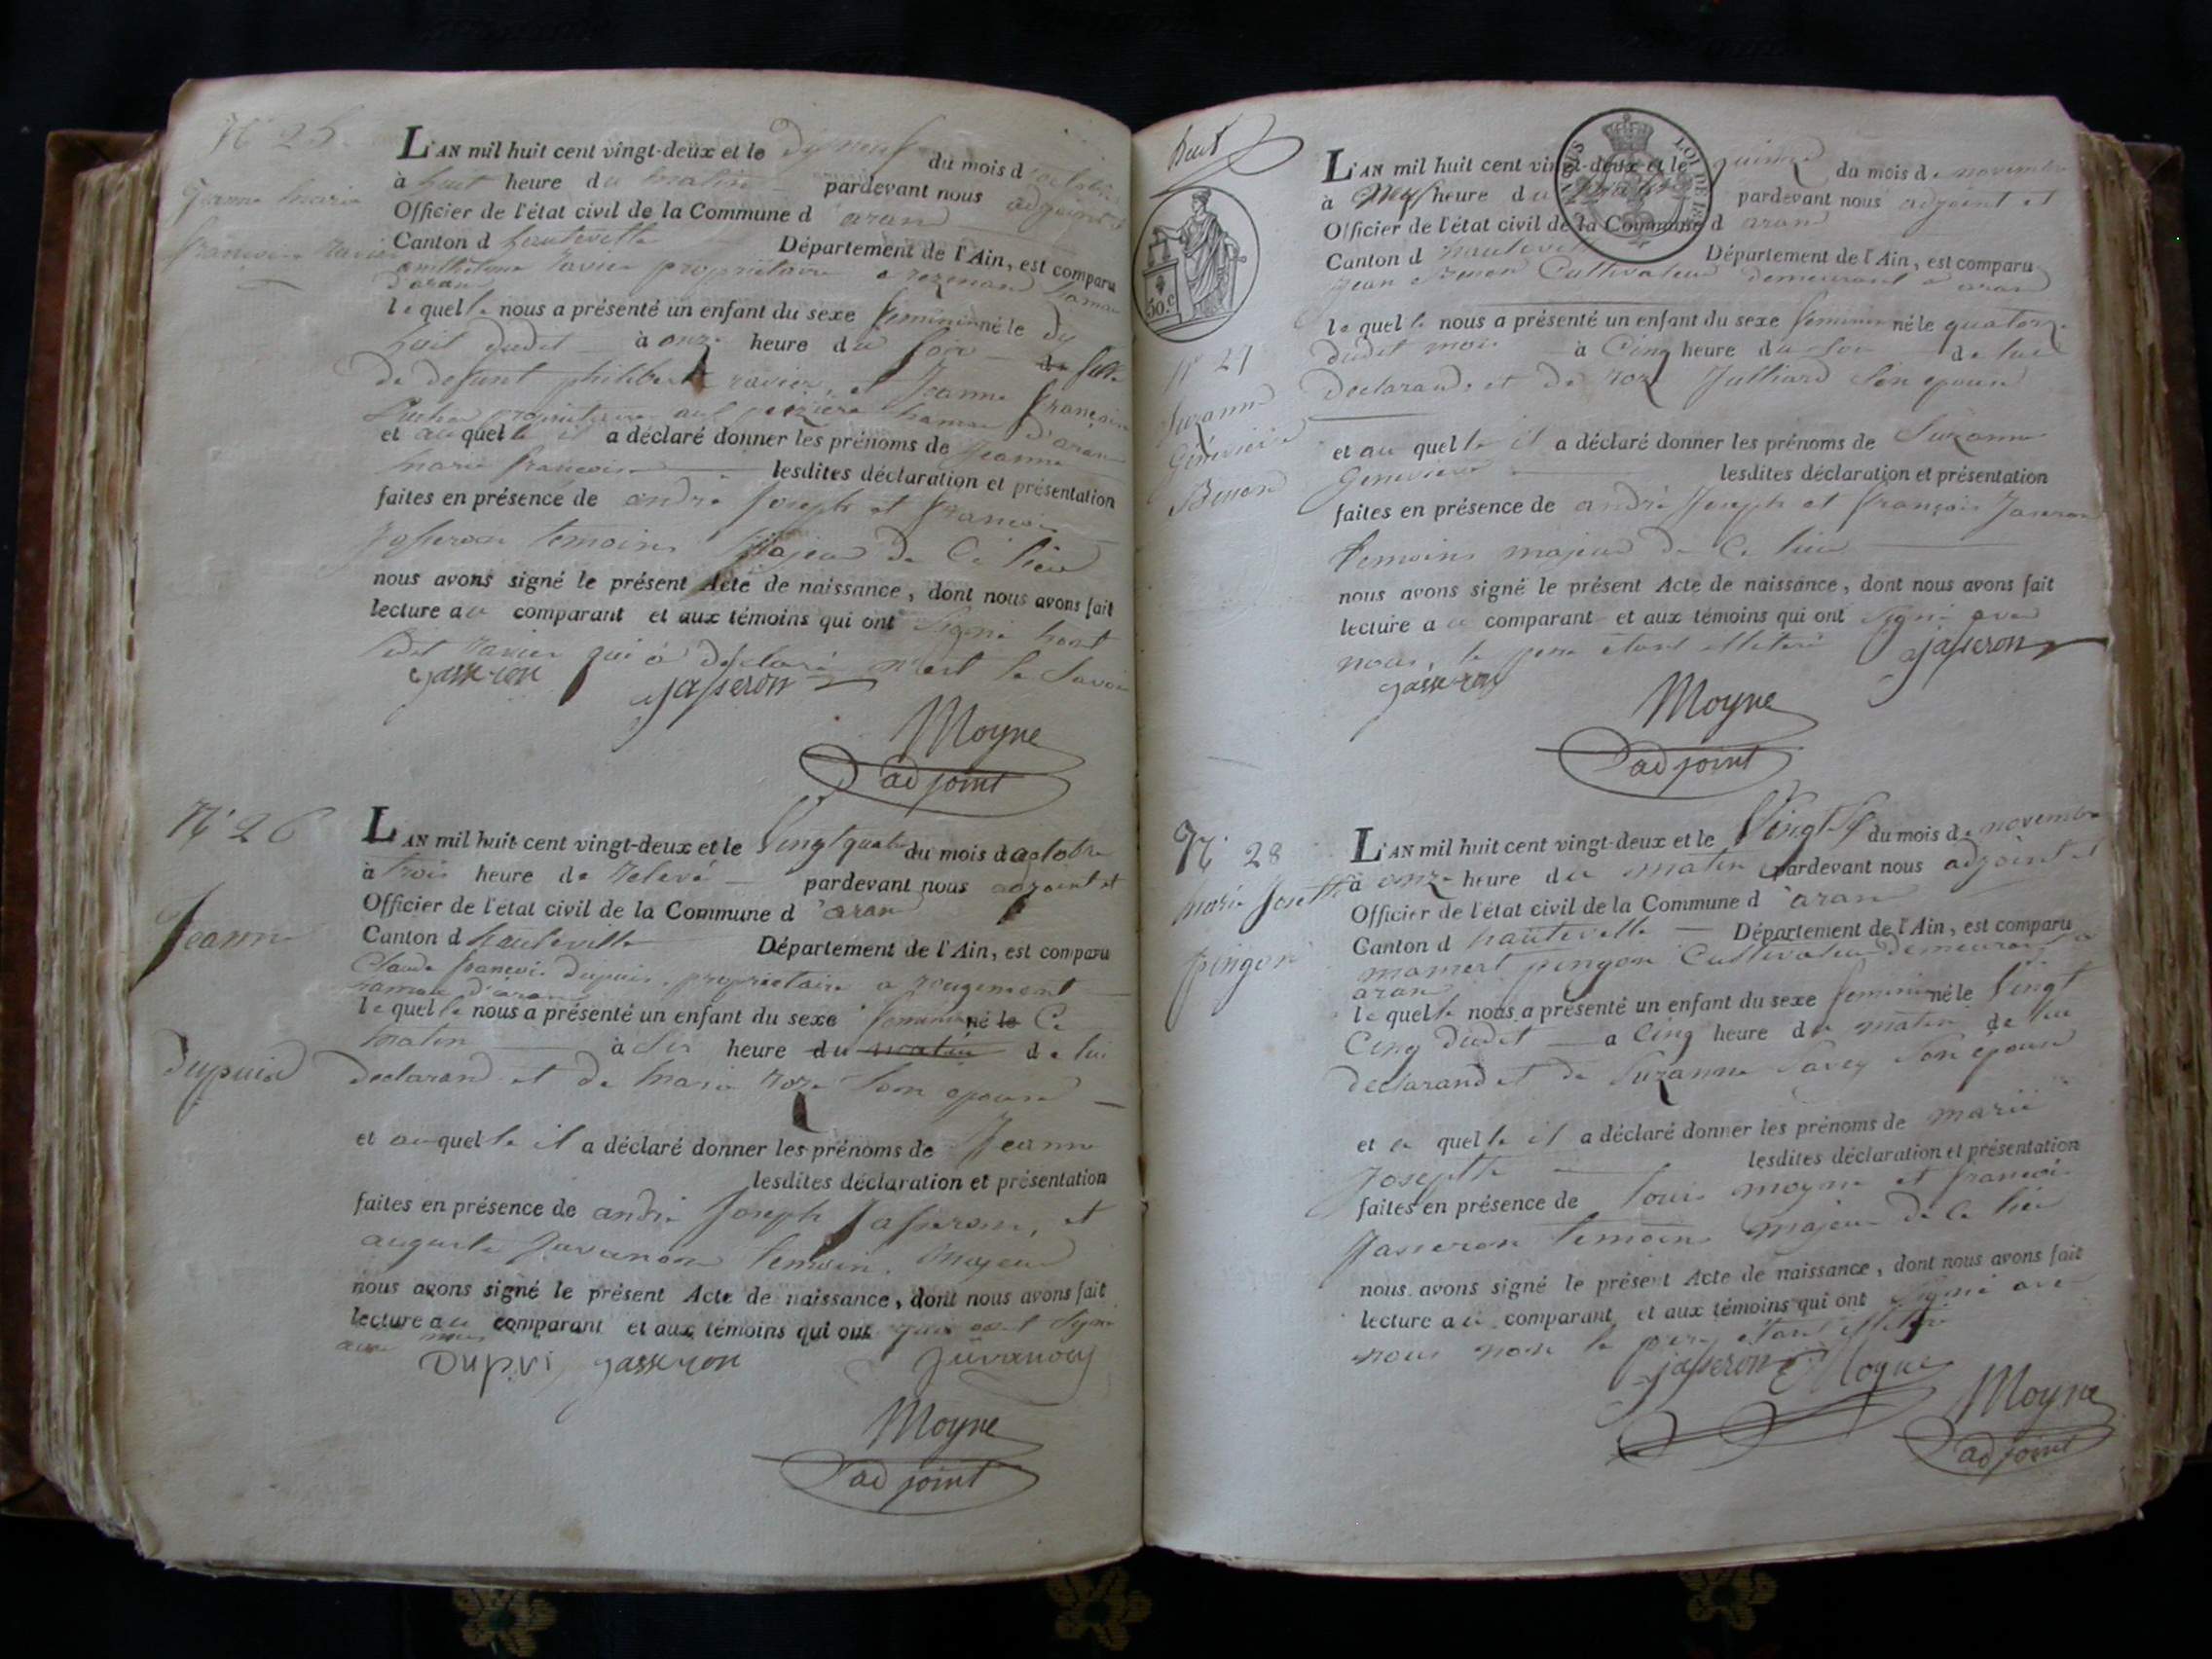 N° 25.
Jeanne Marie
françoise Ravier
L'AN mil huit cent vingt-deux et le dix neuf du mois d'octobre
à huit heure du matin pardevant nous adjoint et
Officier de l'état civil de la Commune d'aran
Canton d'hauteville Département de l'Ain, est comparu
anthelme Ravier propriétaire a rezenand hamau
d'aran
lequel le nous a présenté un enfant du sexe feminin né le dix
huit dudit à onze heure du soir de fille
de defunt philibert ravier, et Jeanne françoise
propriétaire hamau d'aran
et auquel le il a déclaré donner les prénoms de Jeanne
marie françoise lesdites déclaration et présentation
faites en présence de andré Joseph et françois
Jasseron temoins Majeur de Ce lieu
nous avons signé le présent Acte de naissance, dont nous avons fait
lecture au comparant et aux témoins qui ont signé hort
ledit Ravier qui a déclaré n'est le Savoir
Jasseron Jasseron
Moyne
adjoint
N° 26
Jeanne
dupuis
L'AN mil huit cent vingt-deux et le Vingt quatre du mois d'actobre
à trois heure de Relevé pardevant nous adjoint et
Officier de l'état civil de la Commune d'aran
Canton d hauteville Département de l'Ain, est comparu
Claude françois dupuis, propriétaire a rougemont
hamau d'aran
lequel le nous a présenté un enfant du sexe feminin né le Ce
matin à Six heure du matin de lui
declarand et de Marie Roze Son epouse
et auquel le il a déclaré donner les prénoms de Jeanne
lesdites déclaration et présentation
faites en présence de andré Joseph Jasseron, et
auguste Juvanon temoin, Majeur
nous avons signé le présent Acte de naissance, dont nous avons fait
lecture au comparant et aux témoins qui ont qui ont Signé
avec nous
Dupui Jasseron Juvanon
Moyne
adjoint
huit
50.c
LOI DE
N° 27
Suzanne
Génévieve
Benon
L'AN mil huit cent vingt-deux et le quinze du mois de novembre
à neuf heure du matin pardevant nous adjoint et
Officier de l'état civil de la Commune d aran
Canton d hauteville Département de l'Ain, est comparu
Jean Benon Cultivateur demeurant a aran
lequel le nous a présenté un enfant du sexe feminin né le quatorze
dudit mois à Cinq heure du soir de lui
declarand, et de roze Julliard Son epouse
et au quel le il a déclaré donner les prénoms de Suzanne
Genevieve lesdites déclaration et présentation
faites en présence de andré Joseph et françois Jasseron
temoins majeur de Ce lieu
nous avons signé le présent Acte de naissance, dont nous avons fait
lecture au comparant et aux témoins qui ont signé avec
nous, le pere étant illiteré
Jasseron
Jasseron
Moyne
adjoint
N° 28
Marie Josette
pingon
L'AN mil huit cent vingt-deux et le Vingt Six du mois de novembre
à onze heure du matin pardevant nous adjoint et
Officier de l'état civil de la Commune d'aran
Canton d hauteville Département de l'Ain, est comparu
mamert pingon Cultivateur demeurant a
aran
lequel le nous a présenté un enfant du sexe feminin né le Vingt
Cinq dudit a Cinq heure du matin de lui
declarand et de Suzanne Savey Son epouse
et a quel le il a déclaré donner les prénoms de marie
Josepthe lesdites déclaration et présentation
faites en présence de louis moyne et françois
Jasseron temoins majeur de Ce lieu
nous avons signé le présent Acte de naissance, dont nous avons fait
lecture au comparant et aux témoins qui ont signé avec
nous non le pere étant illiteré
Jasseron Moyne
Moyne
adjoint